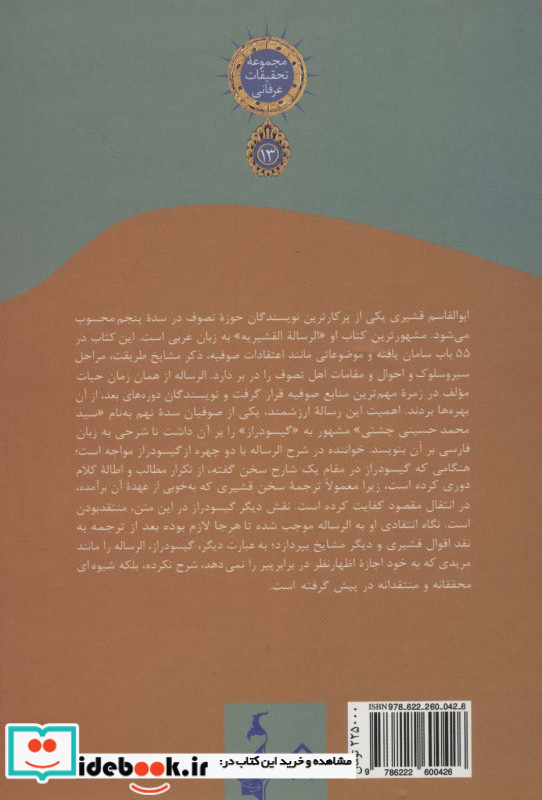 مجموعهٔ
تحقیقات
عرفانی
۱۳
ابوالقاسم قشیری یکی از پرکارترین نویسندگان حوزهٔ تصوف در سدهٔ پنجم محسوب
می‌شود. مشهورترین کتاب او «الرسالة القشیریه» به زبان عربی است. این کتاب در
۵۵ باب سامان یافته و موضوعاتی مانند اعتقادات صوفیه، ذکر مشایخ طریقت، مراحل
سیروسلوک و احوال و مقامات اهل تصوف را در بر دارد. الرساله از همان زمان حیات
مؤلف در زمرهٔ مهم‌ترین منابع صوفیه قرار گرفت و نویسندگان دوره‌های بعد، از آن
بهره‌ها بردند. اهمیت این رسالهٔ ارزشمند، یکی از صوفیان سدهٔ نهم به‌نام «سید
محمد حسینی چشتی» مشهور به «گیسودراز» را بر آن داشت تا شرحی به زبان
فارسی بر آن بنویسد. خواننده در شرح الرساله با دو چهره از گیسودراز مواجه است؛
هنگامی که گیسودراز در مقام یک شارح سخن گفته، از تکرار مطالب و اطالهٔ کلام
دوری کرده است، زیرا معمولاً ترجمهٔ سخن قشیری که به‌خوبی از عهدهٔ آن برآمده،
در انتقال مقصود کفایت کرده است. نقش دیگر گیسودراز در این متن، منتقدبودن
است. نگاه انتقادی او به الرساله موجب شده تا هرجا لازم بوده بعد از ترجمه به
نقد اقوال قشیری و دیگر مشایخ بپردازد؛ به‌عبارت دیگر، گیسودراز، الرساله را مانند
مریدی که به خود اجازهٔ اظهارنظر در برابر پیر را نمی‌دهد، شرح نکرده، بلکه شیوه‌ای
محققانه و منتقدانه در پیش گرفته است.
ISBN 978-622-260-042-6
9 786222 600426
۲۲۵۰۰۰ تومان
مشاهده و خرید این کتاب در:
iidebook.ir